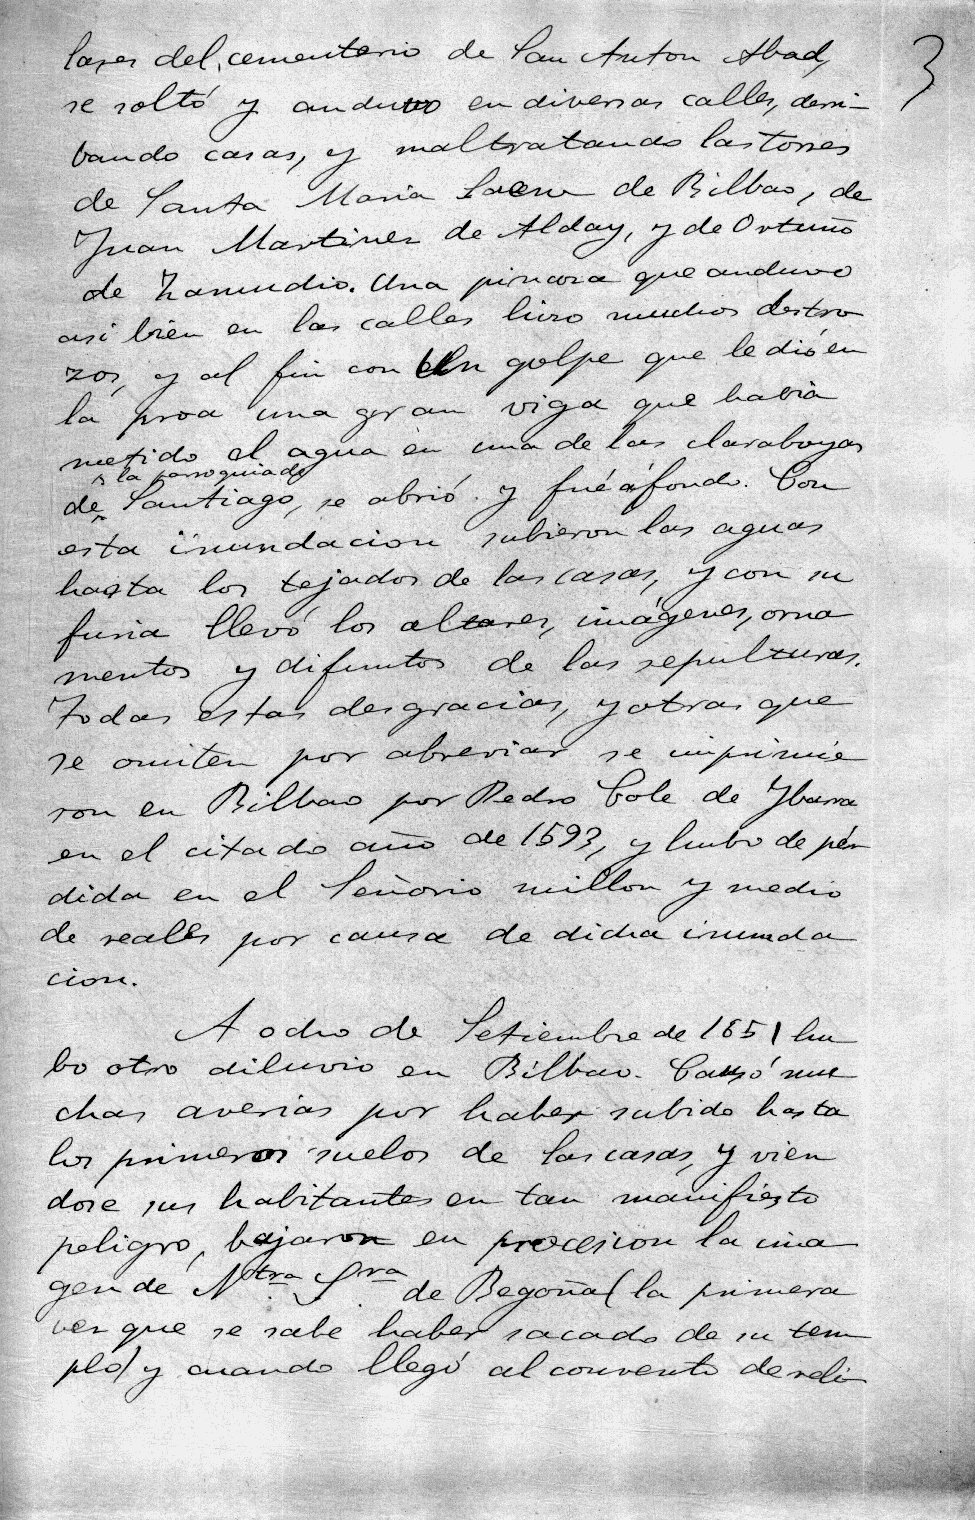 3
lares del cementerio de San Anton Abad,
se soltó y anduvo en diversas calles, derri-
bando casas, y maltratando las torres
de Santa Maria de Bilbao, de
Juan Martinez de Alday, y de Ortuño
de Zamudio. Una pinaza que anduvo
asi bien en las calles hizo muchos destro
zos, y al fin con un golpe que le dió en
la proa una gran viga que habia
metido el agua en una de las claraboyas
de la parroquia de Santiago, se abrió y fué á fondo. Con
esta inundacion subieron las aguas
hasta los tejados de las casas, y con su
furia llevó los altares, imágenes, orna
mentos y difuntos de las sepulturas.
Todas estas desgracias, y otras que
se omiten por abreviar se imprimie
ron en Bilbao por Pedro Cole de Ybarra
en el citado año de 1593, y hubo de pér
dida en el Señorio millon y medio
de reales por causa de dicha inunda
cion.
A ocho de Setiembre de 1651 hu
bo otro diluvio en Bilbao. Causó mu
chas averias por haber subido hasta
los primeros suelos de las casas, y vien
dose sus habitantes en tan manifiesto
peligro, bajaron en procesion la ima
gen de Ntra Sra de Begoña (la primera
vez que se sabe haber sacado de su tem
plo) y cuando llegó al convento de reli